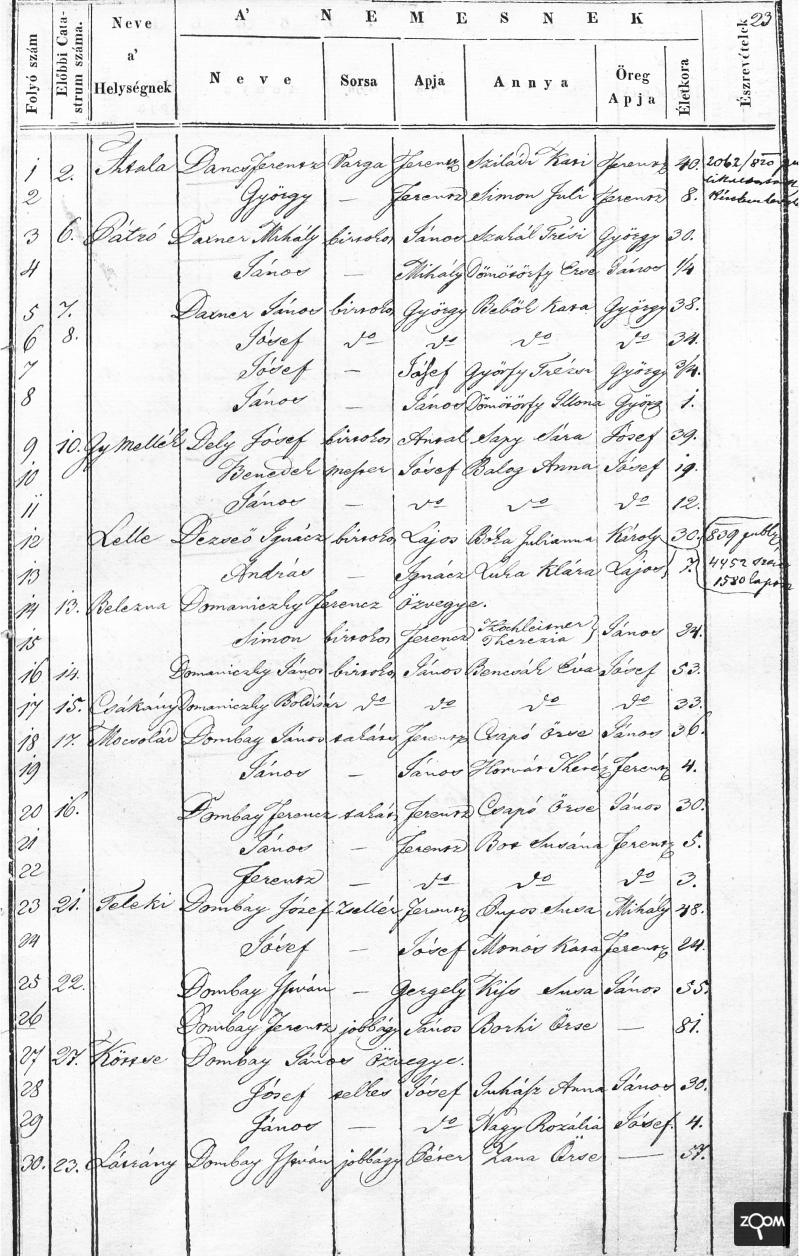 23
A' NEMESNEK
Folyó szám
Előbbi Catastrum száma.
Neve a' Helységnek
Neve Sorsa Apja Annya Öreg Apja Életkora Észrevételek
1 2. Attala Dancs Ferentz Varga Ferentz Sziládi Kati Ferentz 40. 2062/820
2 György — Ferentz Simon Juli Ferentz 8.
3 6. Pátró Daxner Mihály birtokos János Szakál Trési György 30.
4 János — Mihály Dömötörfy Erse János 1/4
5 7. Daxner János birtokos György Bebök Kata György 38.
6 8. Jósef do do do do 34.
7 Jósef — Jósef Györfy Trézsi György 3/4.
8 János — János Dömötörfy Illona György 1.
9 10. Gy Mellék Dely Jósef birtokos Antal Sary Sára Jósef 39.
10 Benedek mester Jósef Balog Anna Jósef 19.
11 János — do do do 12.
12 Lelle Dezseő Ignácz birtokos Lajos Bóka Julianna Károly 30. 809 publ.
13 András — Ignácz Luka Klára Lajos 7. 4452 1580 lapon
14 13. Belezna Domaniczky Ferencz Özvegye.
15 Simon birtokos Ferencz Hochleitner Therezia János 24.
16 14. Domaniczky János birtokos János Bencsák Éva Jósef 53.
17 15. Csákány Domaniczky Boldisár do do do do 33.
18 17. Mocsolád Dombay János takáts Ferentz Csapó Örse János 36.
19 János — János Horvát Theréz Ferentz 4.
20 16. Dombay Ferencz takáts Ferentz Csapó Örse János 30.
21 János — Ferentz Bot Susána Ferentz 5.
22 Ferentz — do do do 3.
23 21. Teleki Dombay Jósef Zsellér Ferentz Pupos Susa Mihály 48.
24 Jósef — Jósef Monós Kata Ferentz 24.
25 22. Dombay István — Gergely Kiss Susa János 55.
26 Dombay Ferentz jobbágy János Borhi Örse — 81.
27 27. Köttse Dombay János Özvegye.
28 Jósef telkes Jósef Juhász Anna János 30.
29 János — do Nagy Rozália Jósef. 4.
30. 23. Látrány Dombay István jobbágy Péter Zana Örse — 57.
ZOOM